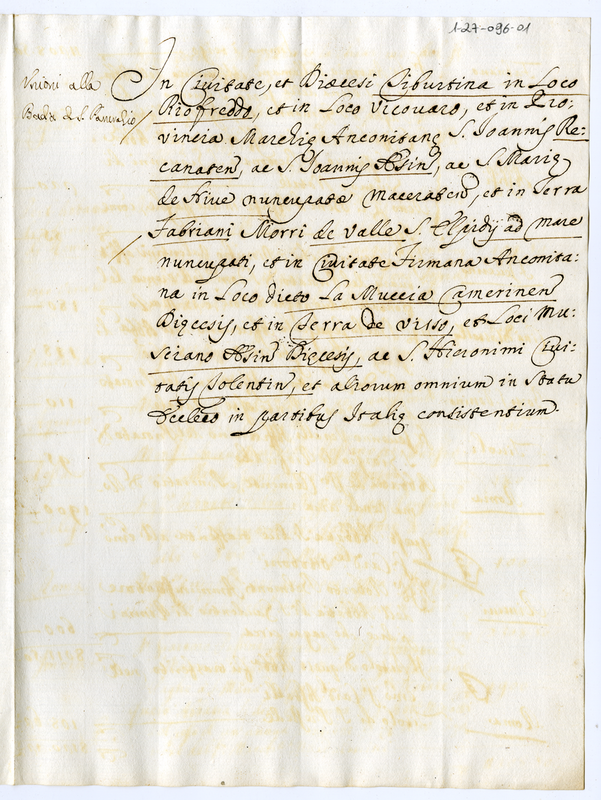 1-27-096-01
Unioni alla
Badia di S. Pancratio
In Civitate, et Diœcesi Tiburtina in Loco
Riofreddo, et in Loco Vicovaro, et in Pro-
vincia Marchię Anconitanę S. Joannis Re-
canaten, ac S. Joannis Æsin, ac S. Marię
de Nive nuncupatæ Maceraten, et in Terra
Fabriani Morri de Valle S. Elpidij ad mare
nuncupati, et in Civitate Firmana Anconita-
na in Loco dicto La Muccia Camerinen
Dięcesis, et in Terra de Visso, et Loci Mu-
sciano Æsin Dięcesis, ac S. Hieronimi Civi-
tatis Tolentin, et aliorum omnium in Statu
Eccleco in partibus Italię consistentium.